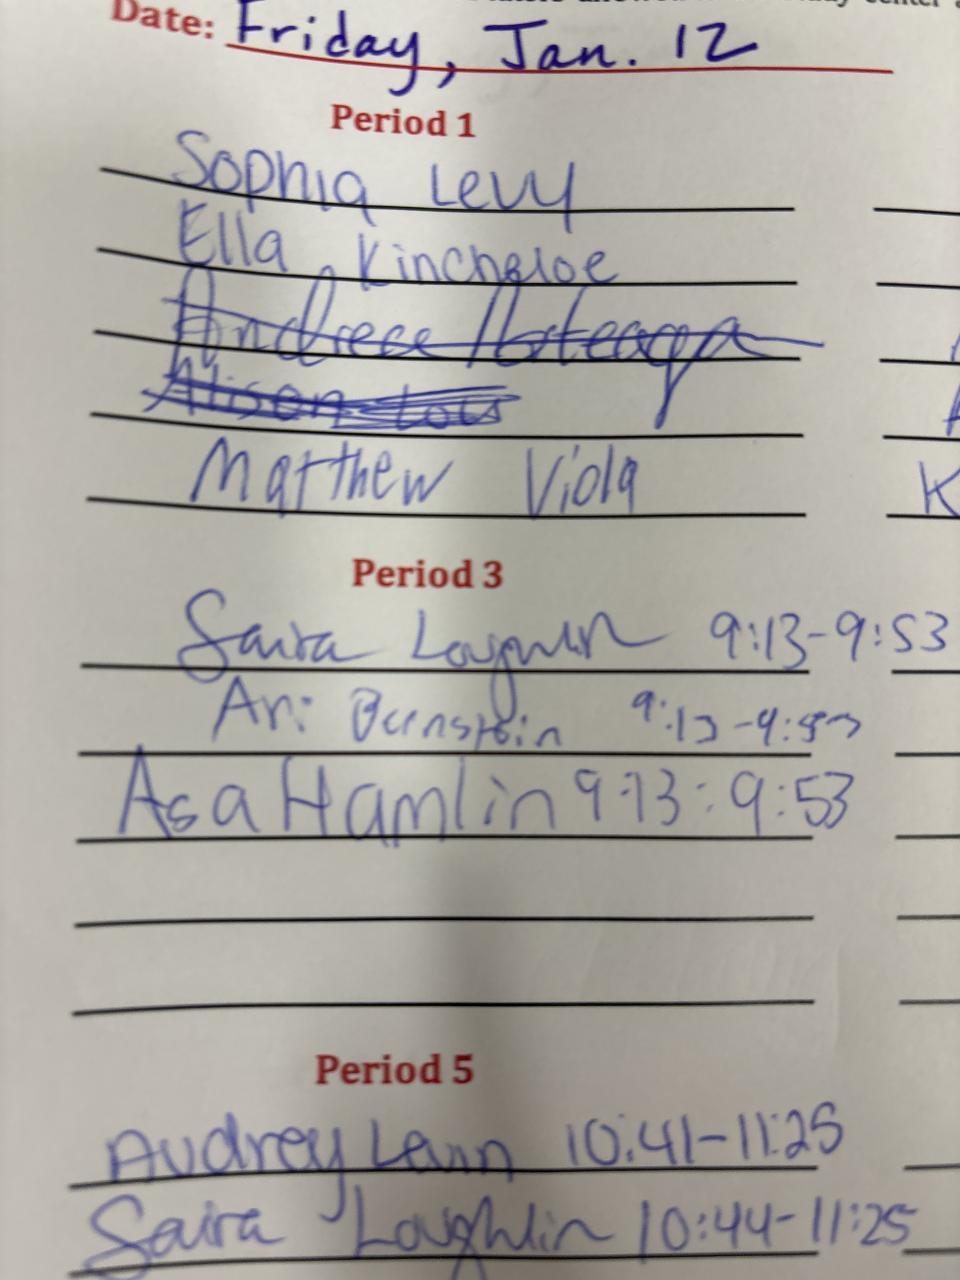 Date: Friday, Jan. 12
Period 1
Sophia Levy
Ella Kincheloe
Matthew Viola
K
Period 3
Saira Loughlin 9:13-9:53
Ari Bernstein 9:13-9:53
Asa Hamlin 9:13:9:53
Period 5
Audrey 10:41-11:25
Saira Loughlin 10:44-11:25